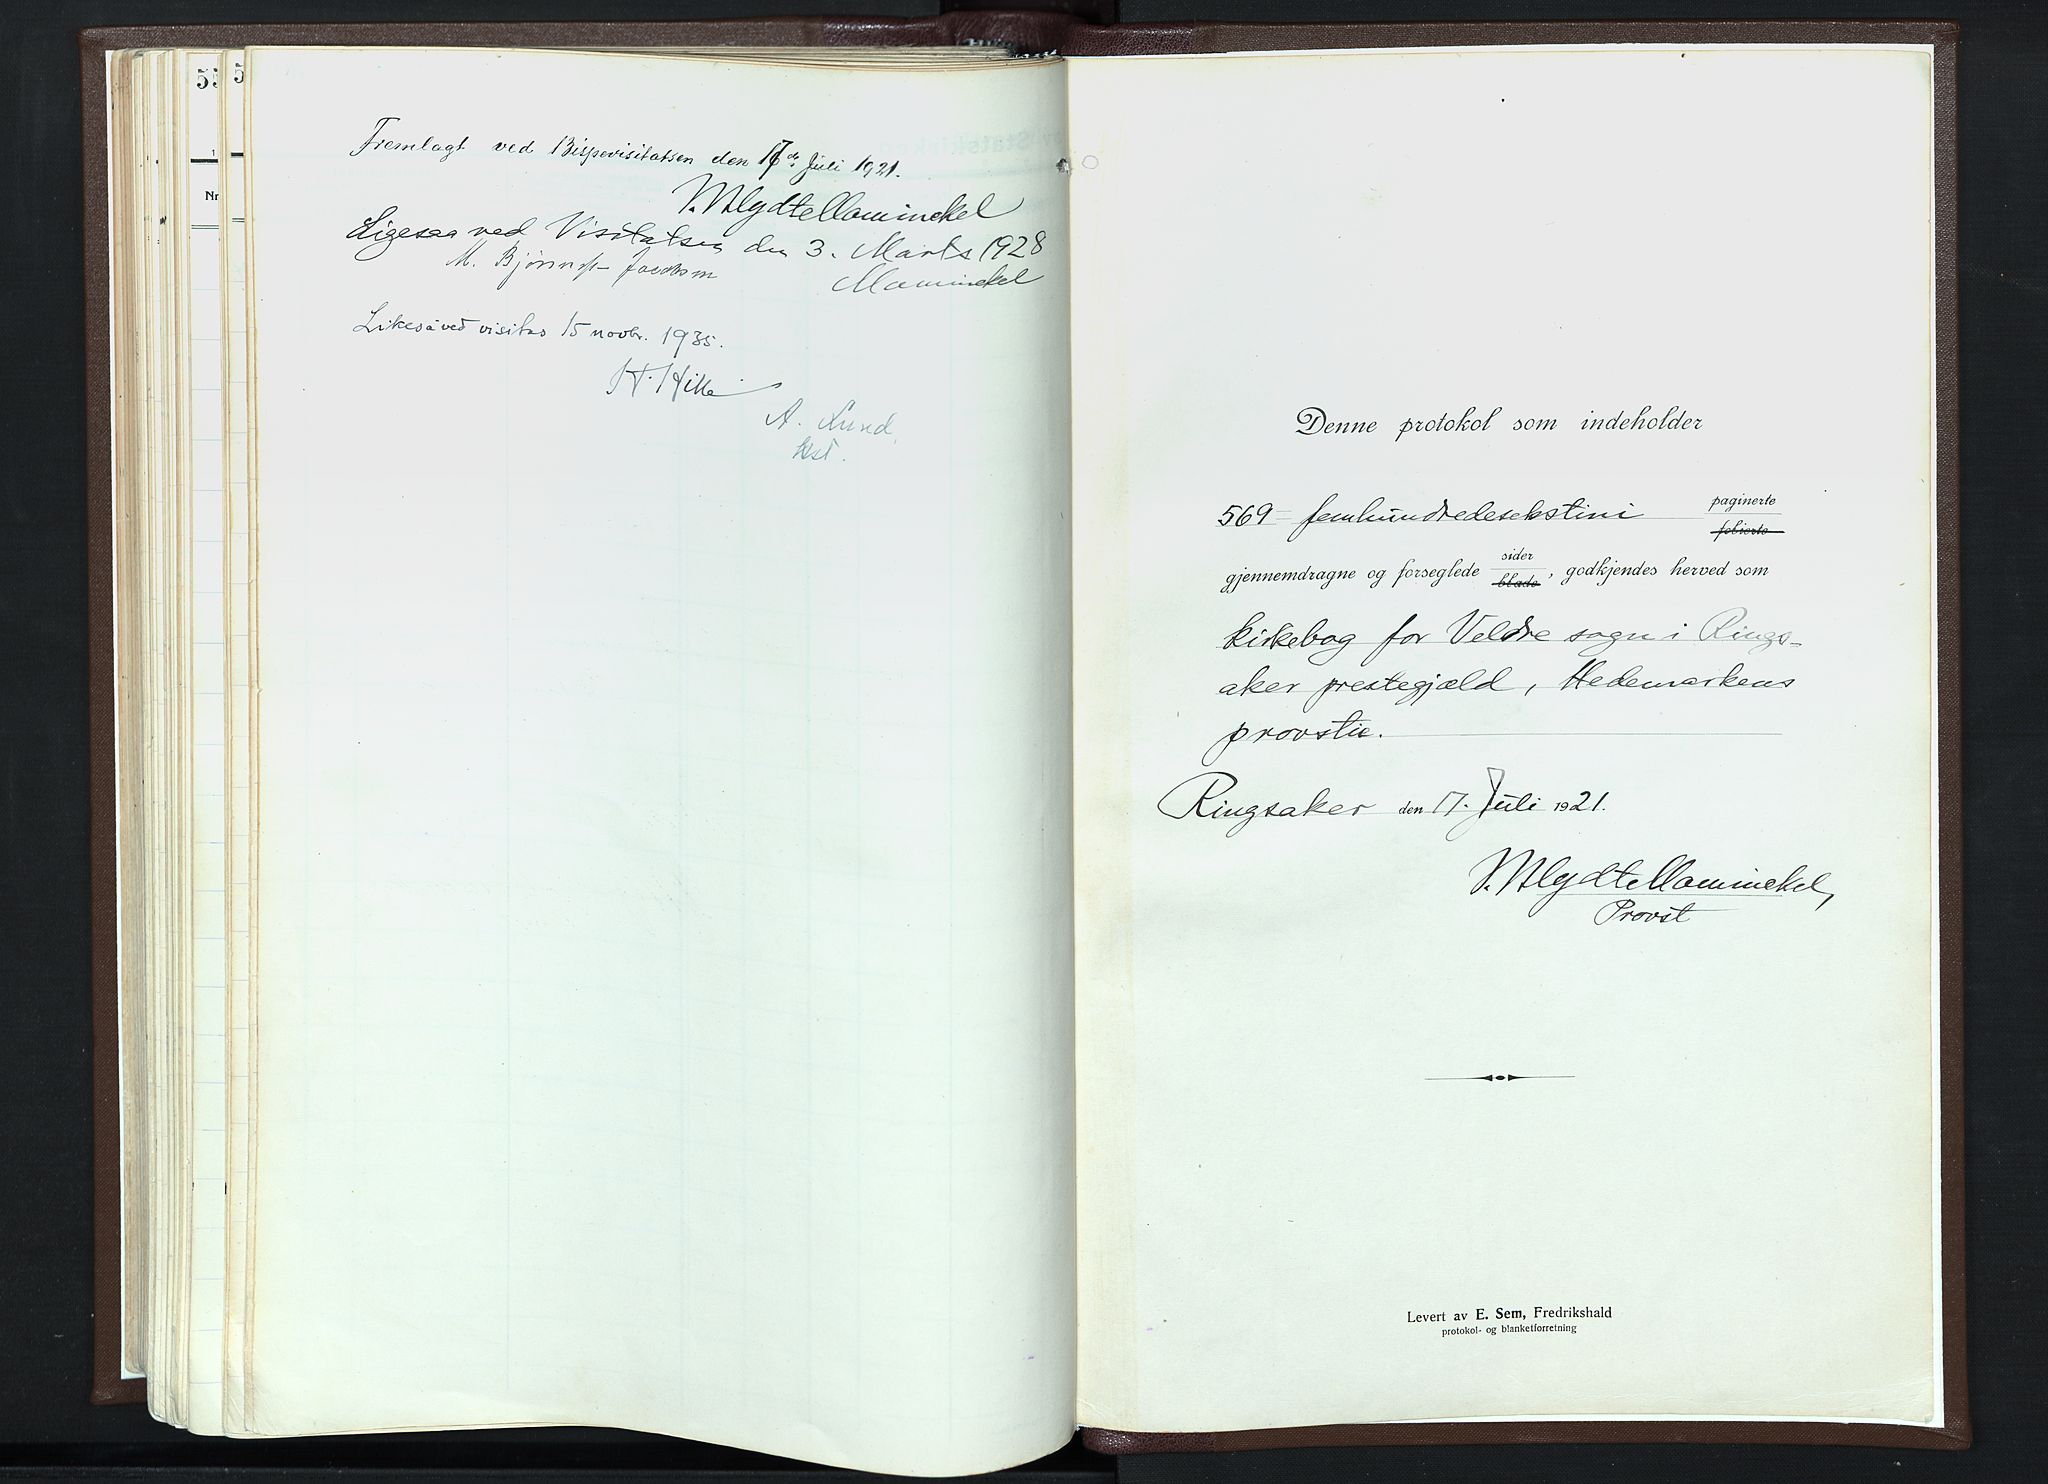 55
5
1
Nr
Fremlagt ved Bispevisitatsen den 17de Juli 1921.
Ligesaa ved Visitatsen den 3. Marts 1928
M. Bjønness-Jacobsen
Likeså ved visitas 15 novbr. 1935.
H. Hille
A. Lund,
kst.
Denne protokol som indeholder
569 = femhundredesekstini paginerte
folierte
gjennemdragne og forseglede sider
blade, godkjendes herved som
kirkebog for Veldre sogn i Rings-
aker prestegjæld, Hedemarkens
provsti.
Ringsaker den 17. Juli 1921.
Provst
Levert av E. Sem, Fredrikshald
protokol- og blanketforretning